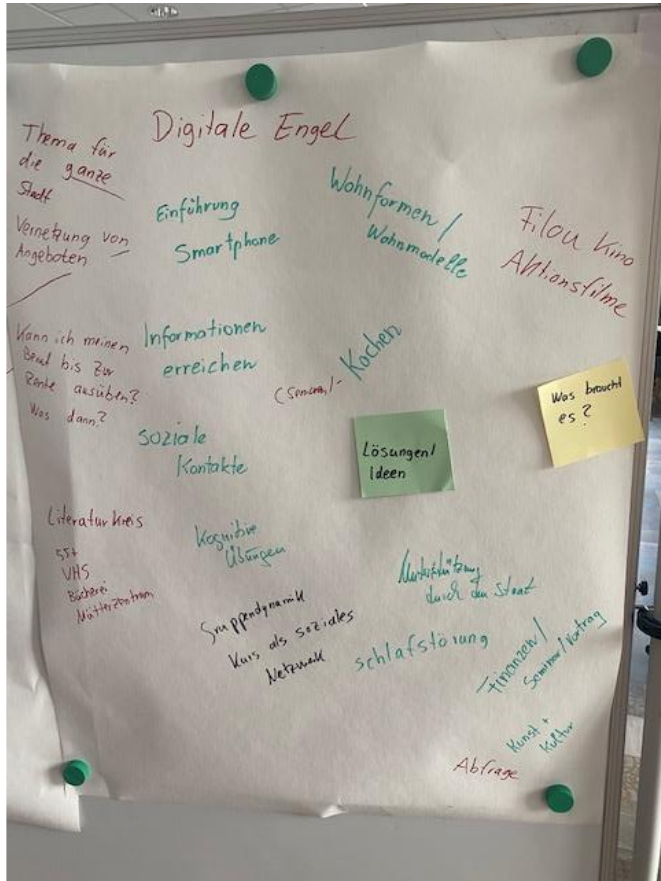 Digitale Engel
Thema für
die ganze
Stadt
Vernetzung von
Angeboten
Einführung
Smartphone
Wohnformen /
Wohnmodelle
Filou Kino
Aktionsfilme
Kann ich meinen
Beruf bis zur
Rente ausüben?
Was dann?
Informationen
erreichen
Kochen
soziale
Kontakte
Lösungen/
Ideen
Was braucht
es?
Literaturkreis
55+
VHS
Bücherei
Mütterzentrum
Kognitive
Übungen
Gruppendynamik
Kurs als soziales
Netzwerk
Unterstützung
durch den Staat
schlafstörung
Finanzen /
Seminar/Vortrag
Kunst +
Kultur
Abfrage